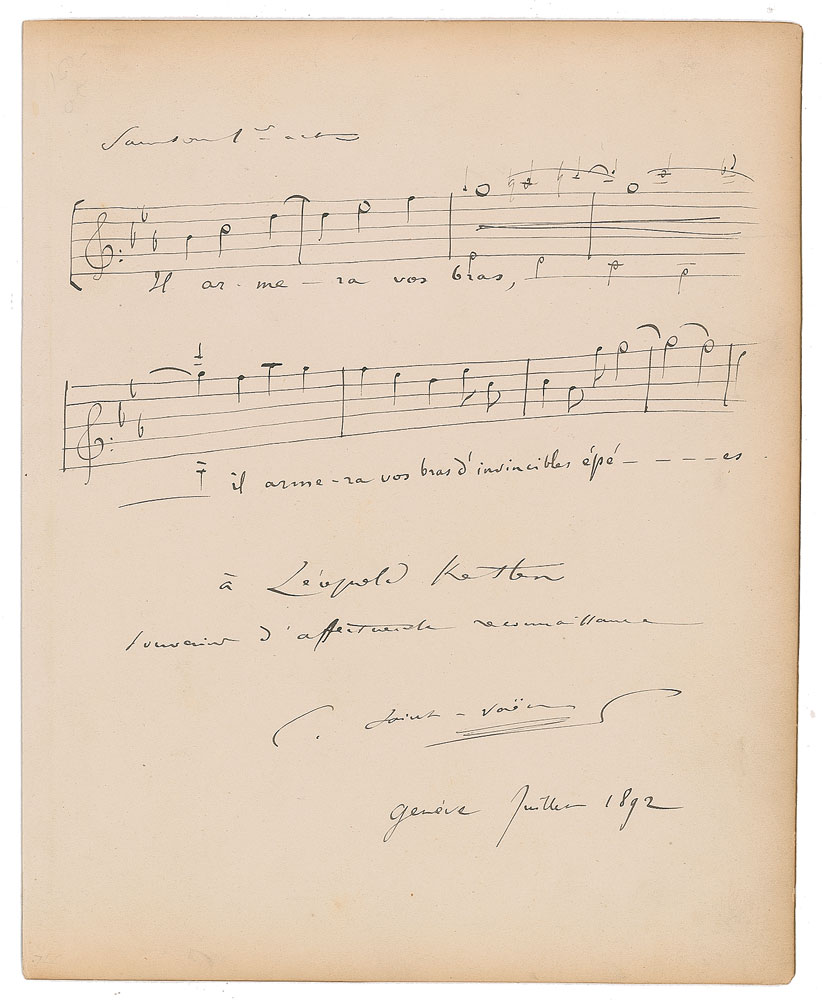 Samson 1er acte
Il ar - me - ra vos bras,
il arme - ra vos bras d'invincibles épé - - - - es
à Léopold Ketten
souvenir d'affectueuse reconnaissance
C. Saint-Saëns
Genève Juillet 1892